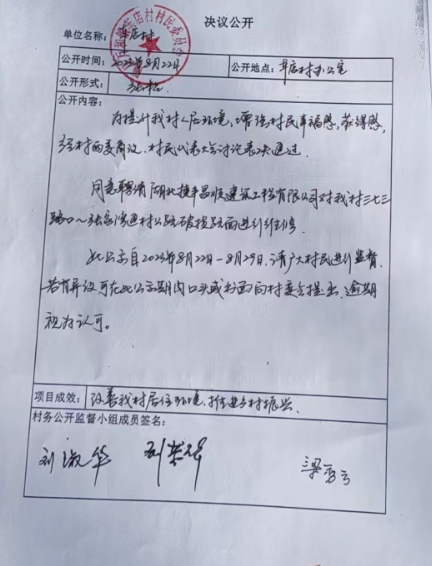 决议公开
单位名称：草店村
公开时间：2023年8月22日 公开地点：草店村办公室
公开形式：张贴
公开内容：
为提升我村人居环境，增强村民幸福感，获得感，
经村两委商议，村民代表大会讨论表决通过。
同意聘请湖北捷丰昌恒建筑工程有限公司对我村三七三
路口～张家湾通村公路破损路面进行维修
此公示自2023年8月22日-8月29日，请广大村民进行监督，
若有异议可在此公示期内口头或书面向村委会提出，逾期
视为认可。
项目成效：改善我村居住环境，推进乡村振兴
村务公开监督小组成员签名：
刘淑华